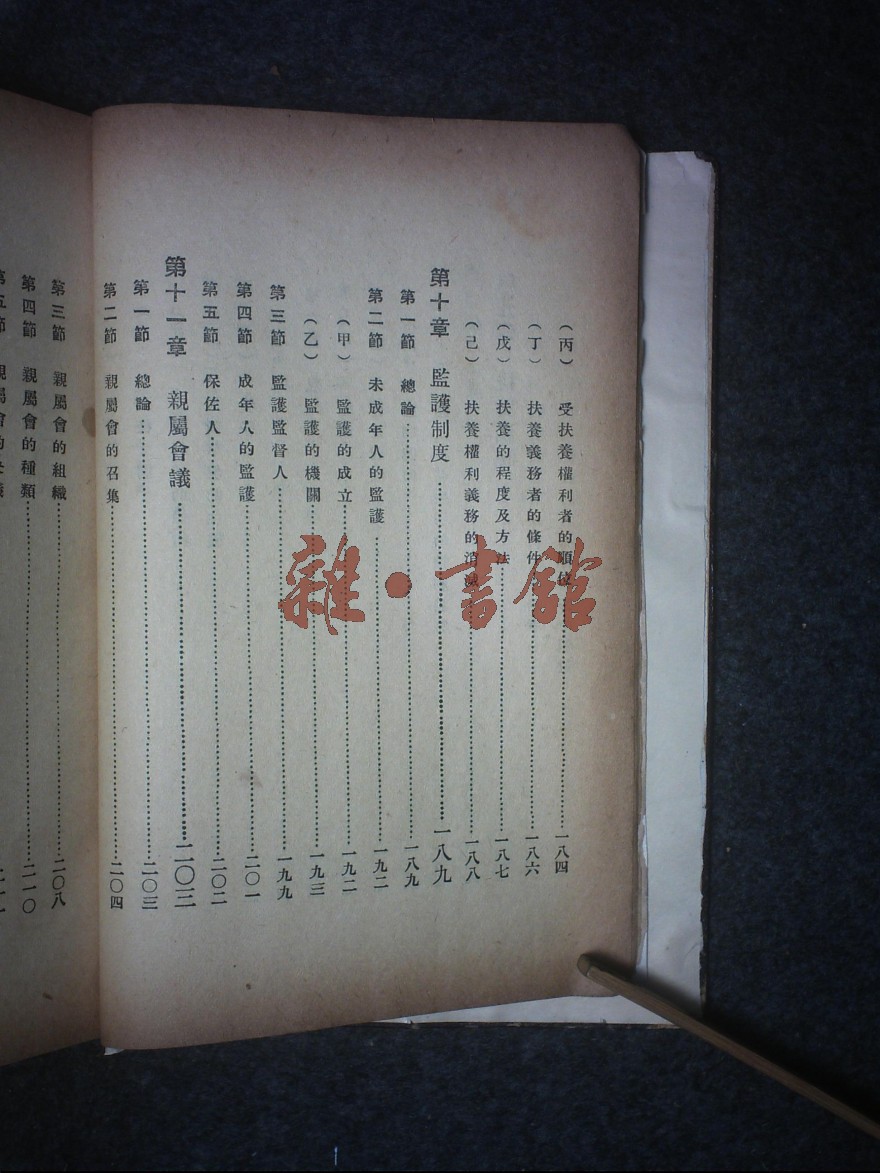 （丙） 受扶養權利者的順位……一八四
（丁） 扶養義務者的條件……一八六
（戊） 扶養的程度及方法……一八七
（己） 扶養權利義務的消滅……一八八
第十章 監護制度……一八九
第一節 總論……一八九
第二節 未成年人的監護……一九二
（甲） 監護的成立……一九二
（乙） 監護的機關……一九三
第三節 監護監督人……一九九
第四節 成年人的監護……二〇一
第五節 保佐人……二〇二
第十一章 親屬會議……二〇三
第一節 總論……二〇三
第二節 親屬會的召集……二〇四
第三節 親屬會的組織……二〇八
第四節 親屬會的種類……二一〇
第五節 親屬會的
雜·書館